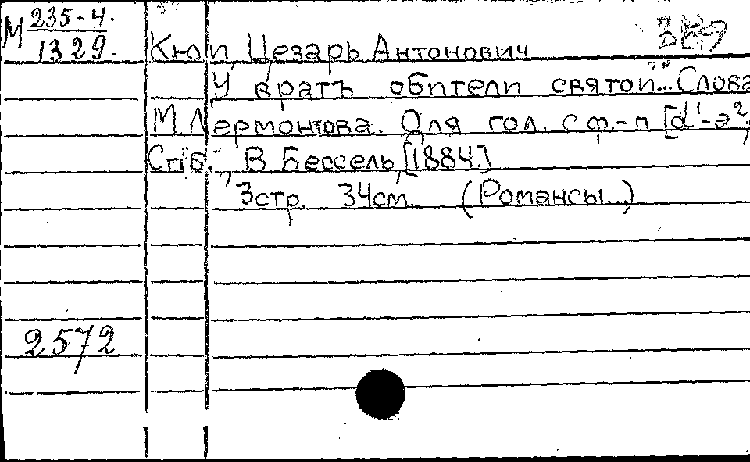 М 235-4.
1329.
Кюи, Цезарь Антонович
У вратъ обители святой... Слова
М. Лермонтова. Для гол. с ф.-п. [d¹-a²]
Спб., В. Бессель, [1884.]
3 стр. 34 см. (Романсы...)
2572